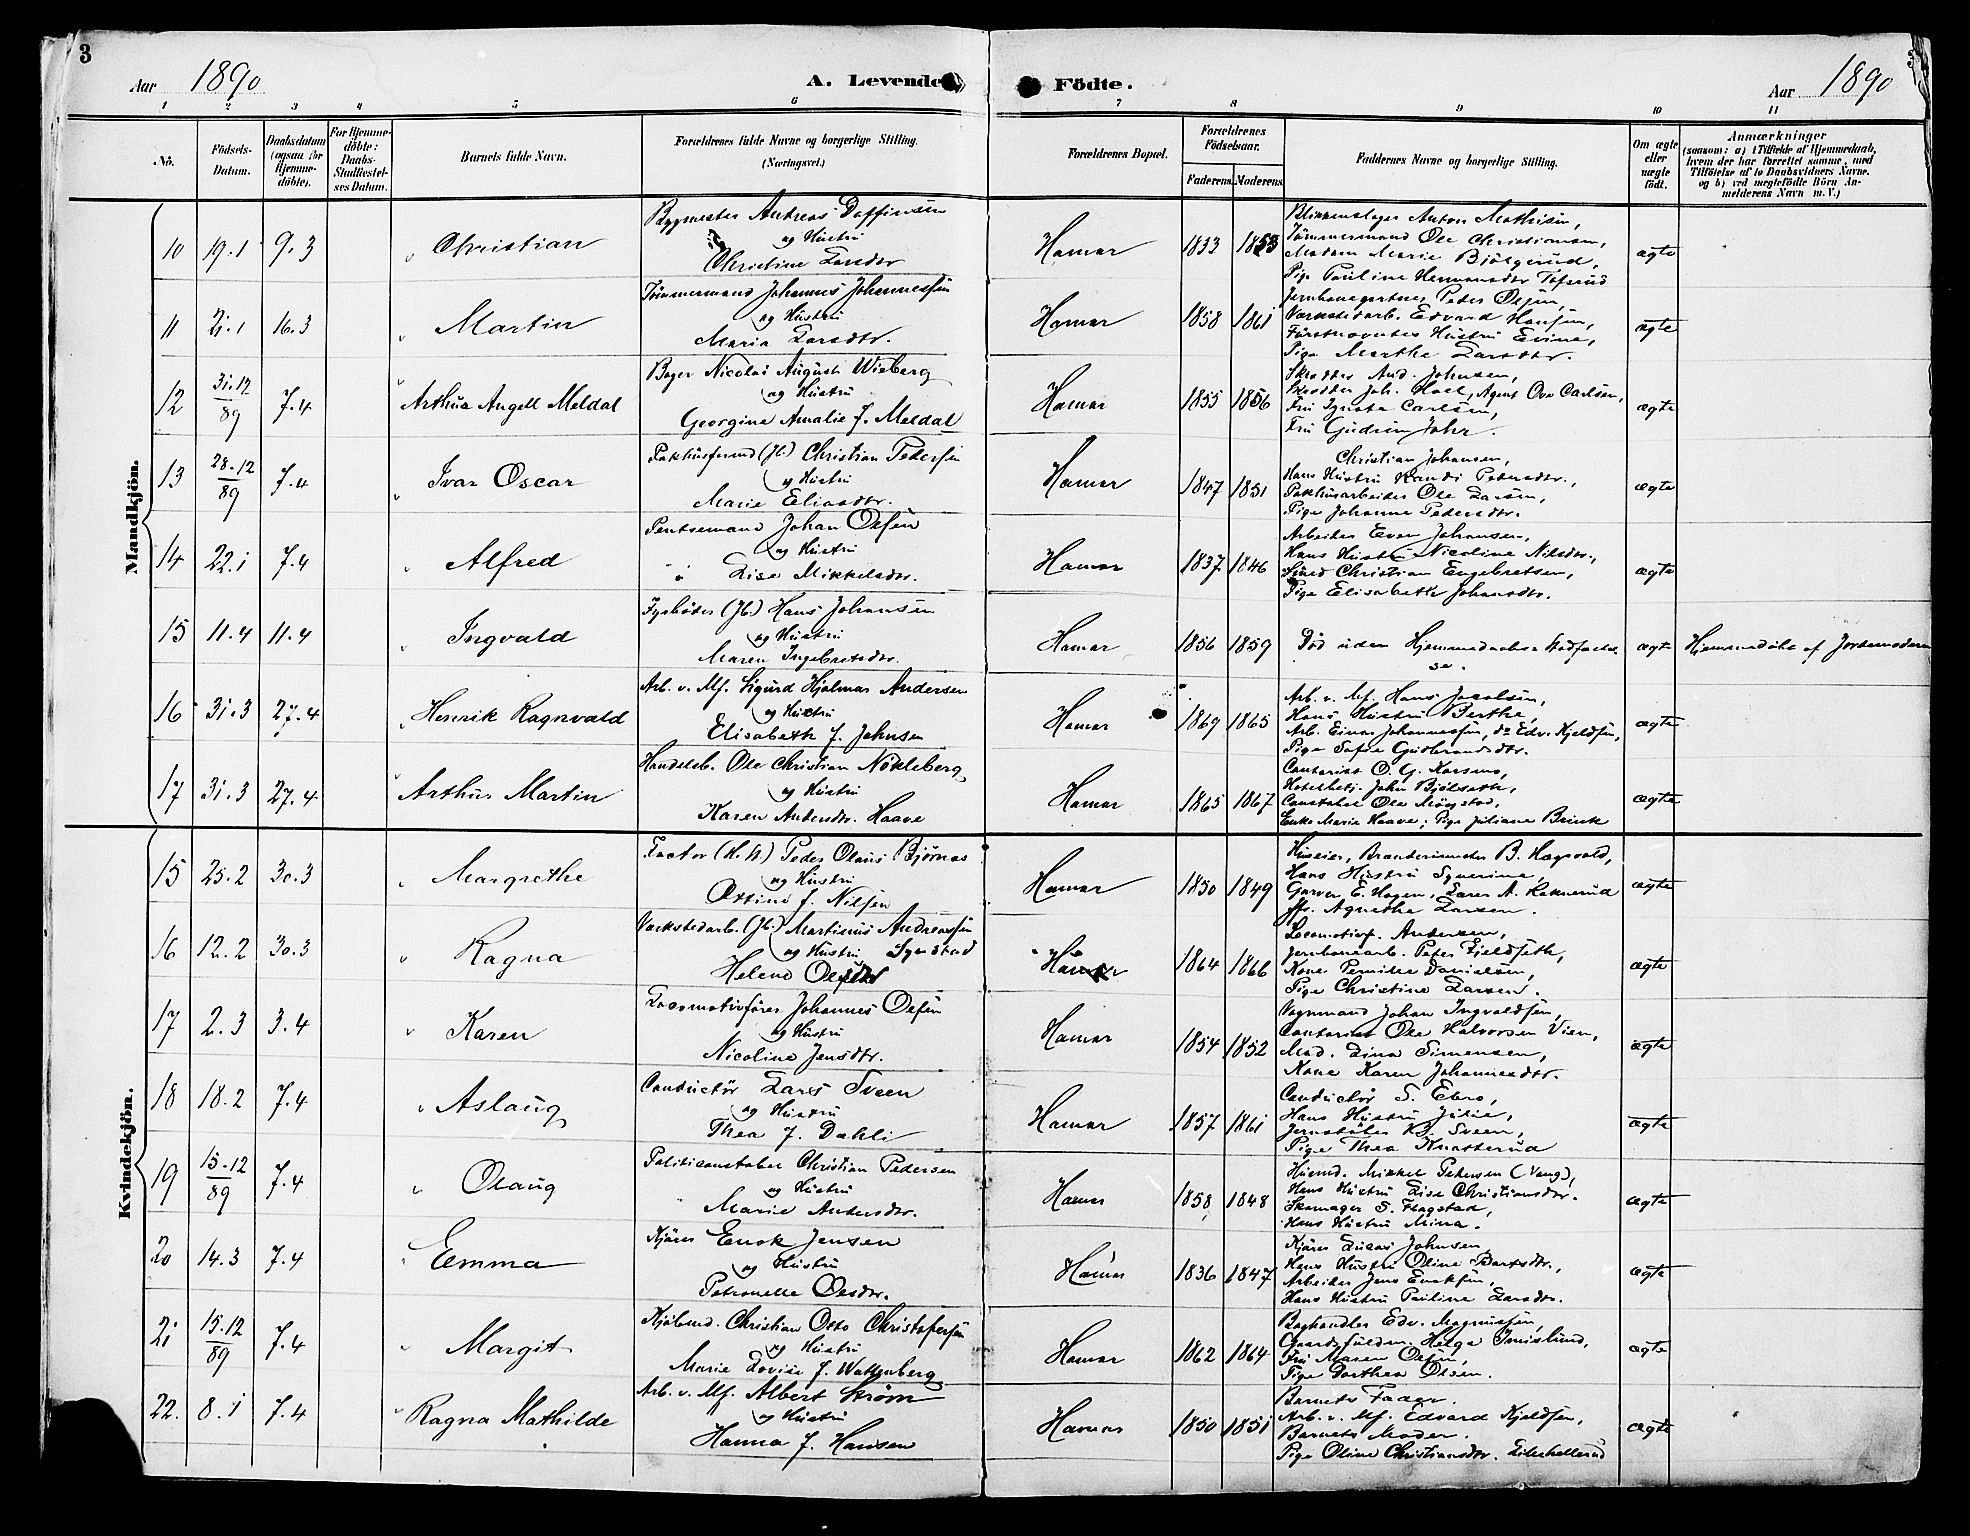 3
Aar 1890
A. Levende Födte.
Aar 1890
1 2 3 4 5 6 7 8 9 10 11
No.
Födsels-Datum.
Daabsdatum (ogsaa for Hjemmedöbte).
For Hjemmedöbte: Daabs-Stadfæstelses Datum.
Barnets fulde Navn.
Forældrenes fulde Navne og borgerlige Stilling. (Næringsvei.)
Forældrenes Bopæl.
Forældrenes Födselsaar.
Faderens. Moderens.
Faddernes Navne og borgerlige Stilling.
Om ægte eller uægte födt.
Anmærkninger
(saasom: a) i Tilfælde af Hjemmedaab, hvem der har forrettet samme, med Tilföielse af to Daabsvidners Navne. og b) ved uægtefödte Börn Anmelderens Navn m. V.)
Mandkjön.
10 19.1 9.3 Christian
Andreas Daffinsen
og Hustru
Christine Larsdtr
Hamar 1833 1853
Blikkenslager Anton Mathisen,
Tømmermand Ole Christiansen,
Madam Marie
Pige Pauline Hermansdtr
ægte
11 21.1 16.3 Martin
Tømmermand Johannes Johannessen
og Hustru
Maria Larsdtr.
Hamar 1858 1861
Peder Olsen,
Værkstedarb. Edvard Hansen,
Hustru Evine,
Pige Marthe Larsdtr.
ægte
12 31.12/89 7.4 Arthur Angell Meldal
Bager Nicolai August Wieberg
og Hustru
Georgine Amalie f. Meldal
Hamar 1855 1856
Skrædder And. Johnsen,
Skrædder Joh. Hoel, Agent Ove Carlsen,
Fru Carlsen,
Fru Gudrun
ægte
13 28.12/89 7.4 Ivar Oscar
Christian Pedersen
og Hustru
Marie Eliasdtr.
Hamar 1847 1851
Christian Johansen,
Hans Hustru Randi Pedersdtr.,
Pakhusarbeider Ole Larsen,
Pige Johanne Pedersdtr.
ægte
14 22.1 7.4 Alfred
Pentsemand Johan Olsen
og Hustru
Lise Mikkelsdtr.
Hamar 1837 1846
Arbeider Even Johansen,
Hans Hustru Nicoline Nilsdtr.,
Christian Engebretsen,
Pige Elisabeth Johansdtr.
ægte
15 11.4 11.4 Ingvald
Fyrbøder (Jb.) Hans Johansen
og Hustru
Maren Ingebretsdtr.
Hamar 1856 1859
Død uden Hjemmedaabs Stadfæstel-
se.
ægte Hjemmedøbt af Jordemoderen
16 31.3 27.4 Henrik Ragnvald
Arb. v. Mf. Sigurd Hjalmar Andersen
og Hustru
Elisabeth f. Johnsen
Hamar 1869 1865
Arb. v. Mf. Hans Jacobsen,
Hans Hustru Berthe,
Arb. Einar Johannessen, do Edv. Kjeldsen,
Pige Sofie Gudbrandsdtr.
ægte
17 31.3 27.4 Arthur Martin
Handelsb. Ole Christian Nökleberg
og Hustru
Karen Andersdtr. Haave
Hamar 1865 1867
Contorist O. G. Korsmo,
Hotelbetj. John
Constabel Ole
Enke Marie Haave; Pige Juliane Brink
ægte
Kvindekjön.
15 25.2 30.3 Margrethe
Factor Peder Olaus Bjørnas
og Hustru
Ottine f. Nilsen
Hamar 1850 1849
Huseier, B. Hagevold,
Hans Hustru Synerine,
Garver E. Hagen, Lærer A.
Agnethe Larsen.
ægte
16 12.2 30.3 Ragna
Værkstedarb. (Jb.) Martinus Andreassen
og Hustru
Helene Olsdtr
Hamar 1864 1866
Locomotivf. Andersen,
Jernbanearb. Peter Fjeldseth,
Kone Pernille Danielsen,
Pige Christine Larsen.
ægte
17 2.3 3.4 Karen
Locomotivfører Johannes Olsen
og Hustru
Nicoline Jensdtr.
Hamar 1854 1852
Vognmand Johan Ingvaldsen,
Contorist Ole Halvorsen Vien,
Mad. Lina Simensen,
Kone Karen Johannesdtr.
ægte
18 18.2 7.4 Aslaug
Conductør Lars Sveen
og Hustru
Thea f. Dahli
Hamar 1857 1861
Conductør S. Ebro,
Hans Hustru Julie,
Sveen,
Pige Thea Knatterud
ægte
19 15.12/89 7.4 Olaug
Politiconstabel Christian Pedersen
og Hustru
Marie Andersdtr.
Hamar 1858 1848
Husmd. Mikkel Pedersen (Vang),
Hans Hustru Lise Christiansdtr.
Skomager S. Flagstad,
Hans Hustru Mina.
ægte
20 14.3 7.4 Emma
Kjører Enok Jensen
og Hustru
Petronelle Olsdtr.
Hamar 1836 1847
Kjører Lucas Johnsen
Hans Hustru Oline
Arbeider Jens Enoksen,
Hans Hustru Pauline Larsdtr.
ægte
21 15.12/89 7.4 Margit
Kjøbmd. Christian Otto Christofersen
og Hustru
Marie Lovise f. Wattenberg
Hamar 1862 1864
Boghandler Edv. Magnussen,
Helge Imislund,
Fru Maren Olsen,
Pige Dorthea Olsen.
ægte
22. 8.1 7.4 Ragna Mathilde
Arb. v. Mf. Albert Strøm
og Hustru
Hanna f. Hansen
Hamar 1850 1851
Barnets Fader.
Arb. v. Mf. Edvard Kjeldsen,
Barnets Moder.
Pige Oline Christiansdtr.
ægte